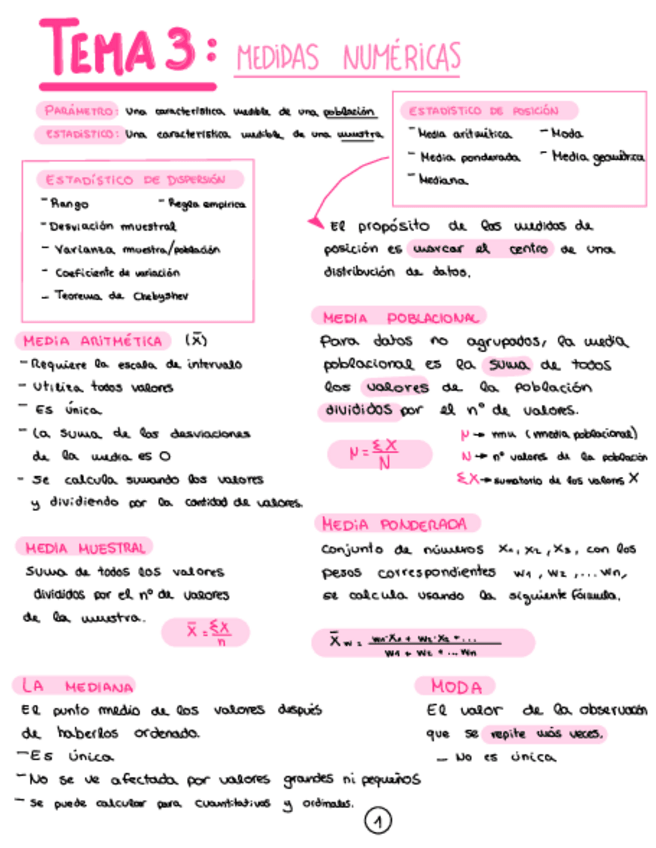 TEMA 3: MEDIDAS NUMÉRICAS
PARÁMETRO: Una característica medible de una población
ESTADÍSTICO: Una característica medible de una muestra
ESTADÍSTICO DE POSICIÓN
- Media aritmética - Moda
- Media ponderada - Media geométrica
- Mediana
ESTADÍSTICO DE DISPERSIÓN
- Rango - Regla empírica
- Desviación muestral
- Varianza muestra/población
- Coeficiente de variación
- Teorema de Chebyshev
El propósito de las medidas de
posición es marcar el centro de una
distribución de datos.
MEDIA ARITMÉTICA (X̄)
- Requiere la escala de intervalo
- Utiliza todos valores
- Es única
- La suma de las desviaciones
de la media es 0
- Se calcula sumando los valores
y dividiendo por la cantidad de valores.
MEDIA POBLACIONAL
Para datos no agrupados, la media
poblacional es la suma de todos
los valores de la población
divididos por el nº de valores.
μ = ΣX / N
μ → mu (media poblacional)
N → nº valores de la población
ΣX → sumatorio de los valores X
MEDIA MUESTRAL
Suma de todos los valores
divididos por el nº de valores
de la muestra.
X̄ = ΣX / n
MEDIA PONDERADA
Conjunto de números X₁, X₂, X₃, con los
pesos correspondientes W₁, W₂, ... Wn,
se calcula usando la siguiente fórmula.
X̄w = W₁·X₁ + W₂·X₂ + ... / W₁ + W₂ + ... Wn
LA MEDIANA
El punto medio de los valores después
de haberlos ordenado.
- Es única
- No se ve afectada por valores grandes ni pequeños
- Se puede calcular para cuantitativos y ordinales.
MODA
El valor de la observación
que se repite más veces.
- No es única
1